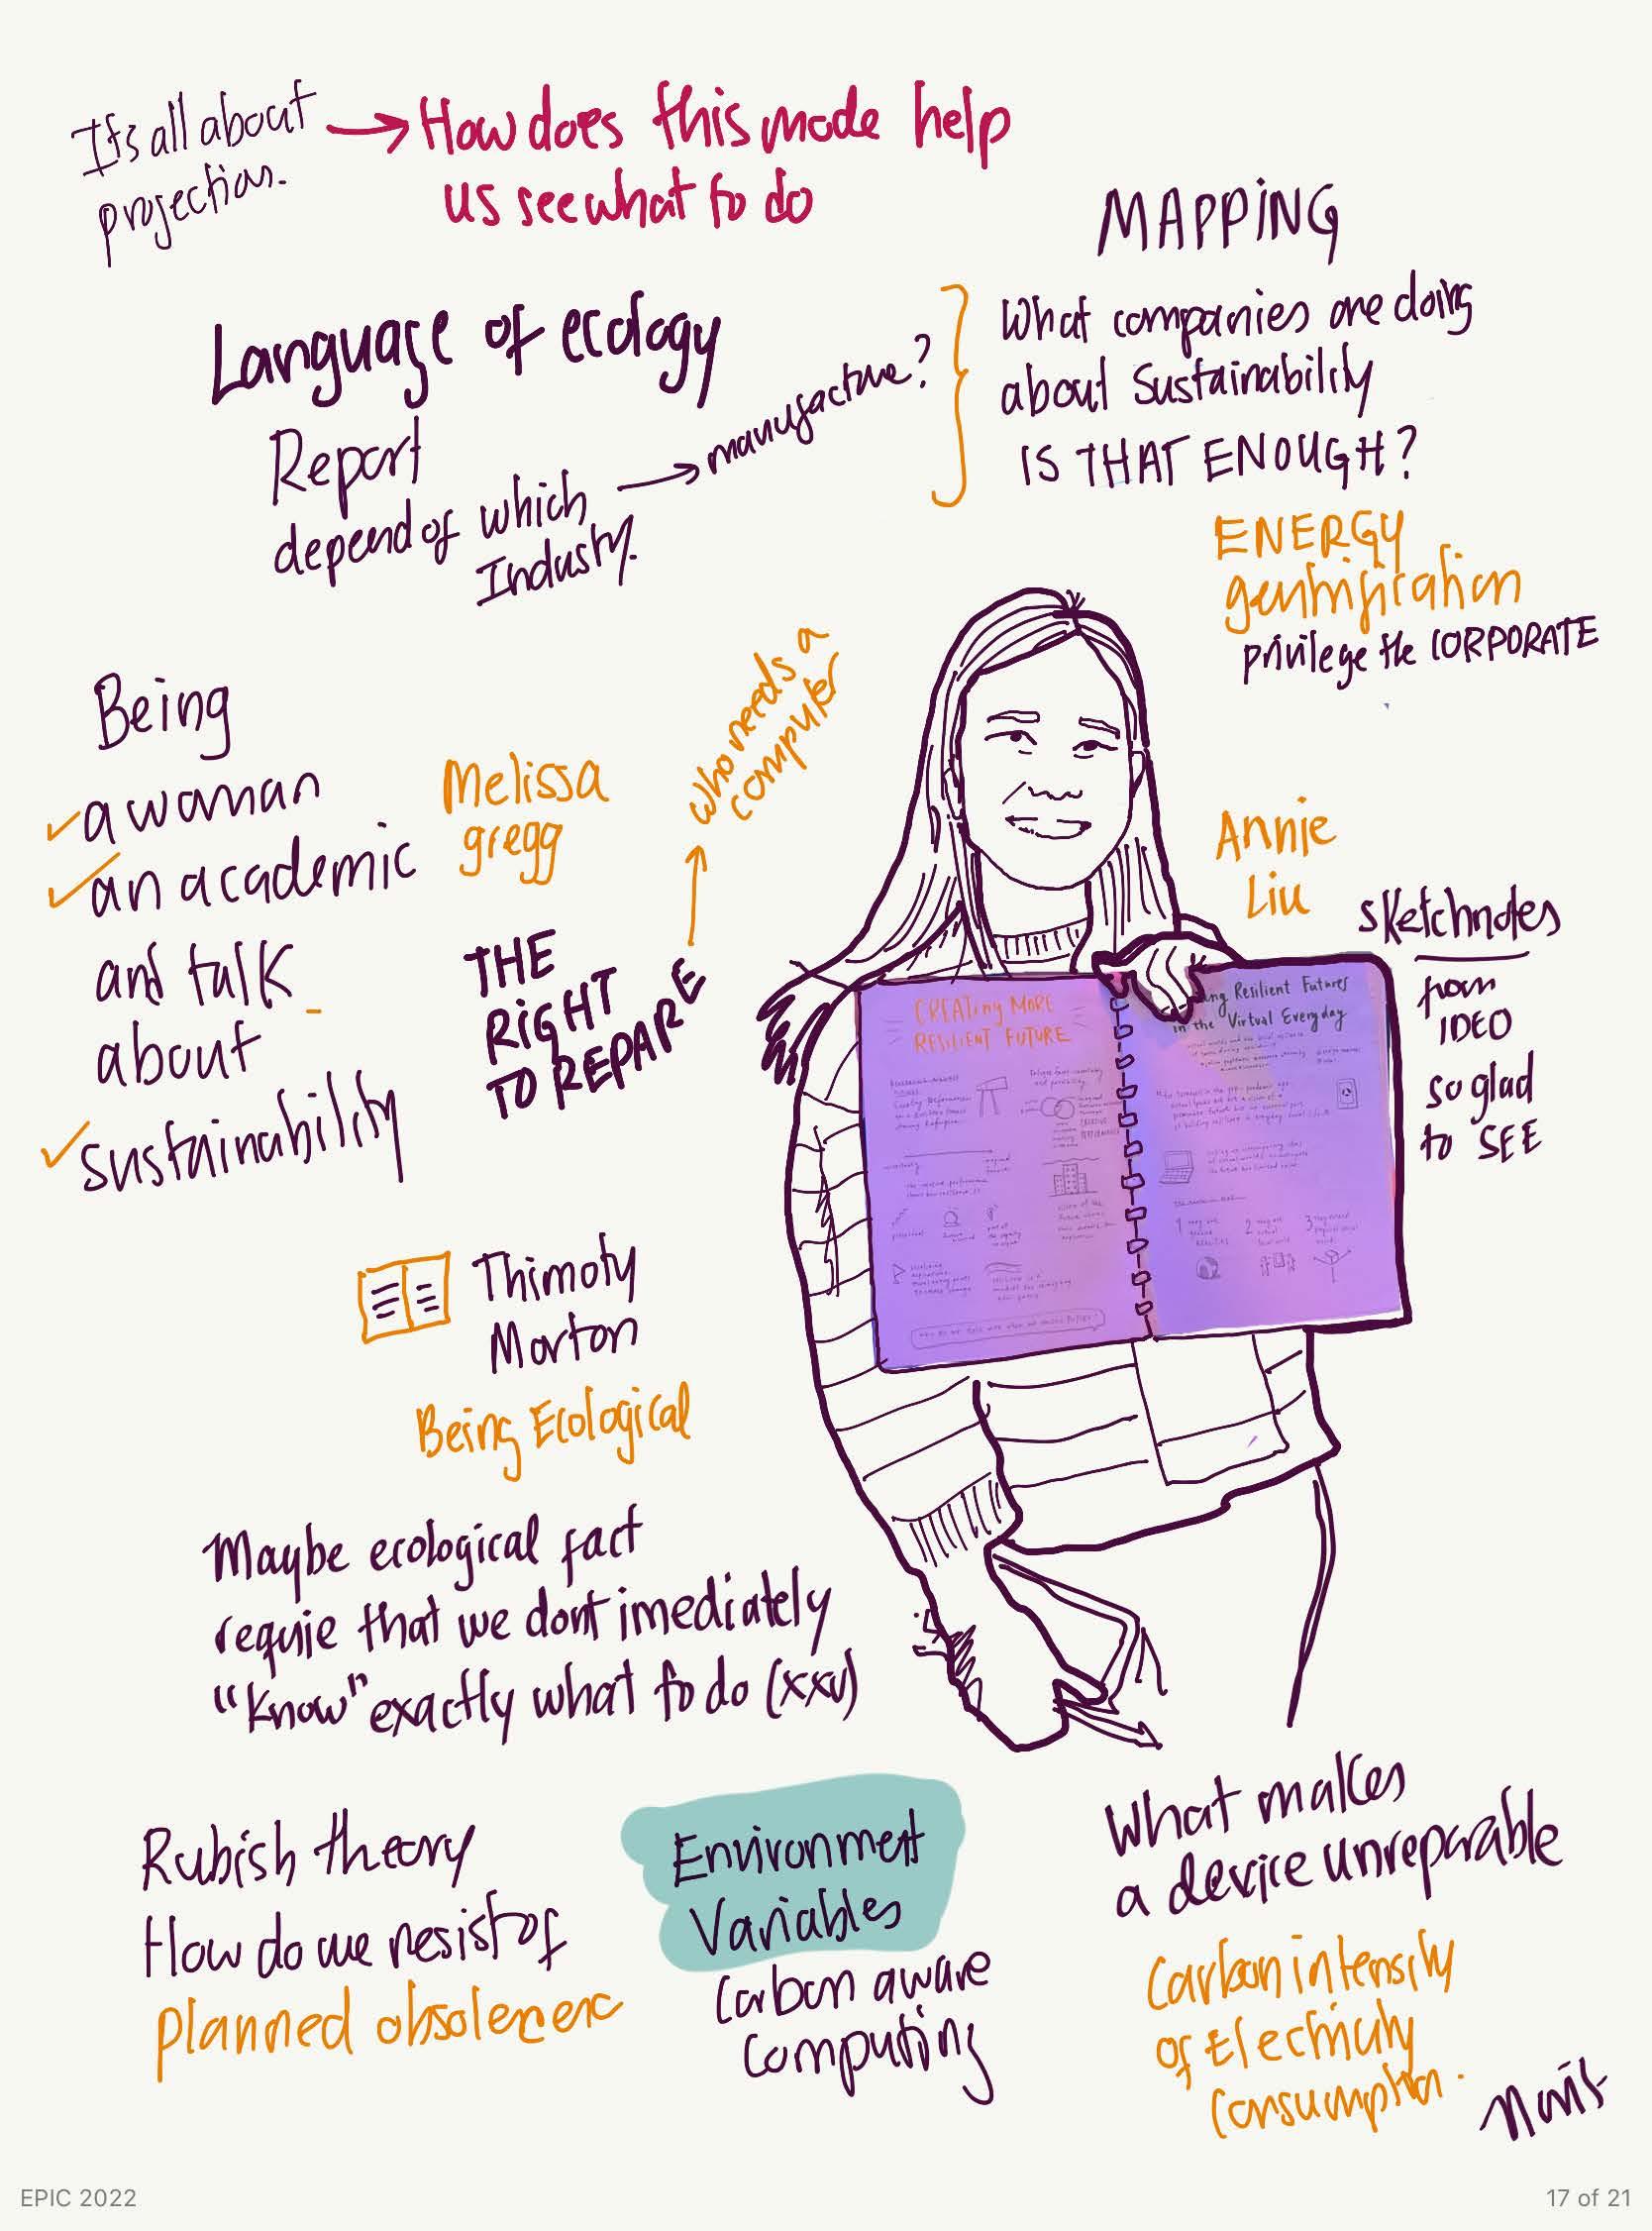 Its all about
projection.
→ How does this mode help
us see what to do
MAPPING
What companies are doing
about Sustainability
IS THAT ENOUGH?
Language of ecology
Report
depend of which
Industry.
→ manufacture?
ENERGY
gentrification
privilege the CORPORATE
Being
✓ a woman
✓ an academic
and talk
about
✓ sustainability
Melissa
gregg
THE
RIGHT
TO REPARE
→ who needs a
computer
Annie
Liu
sketchnotes
from
IDEO
so glad
to SEE
CREATING MORE
RESILIENT FUTURE
Resilient Futures
in the Virtual Everyday
Thimoty
Morton
Being Ecological
Maybe ecological fact
requie that we dont imediately
"Know" exactly what to do (xxv)
Rubish theory
How do we resist of
planned obsolecenc
Environment
Variables
Carbon aware
Computing
What makes
a device unreparable
Carbon intensity
of Electricity
Consumption.
EPIC 2022
17 of 21